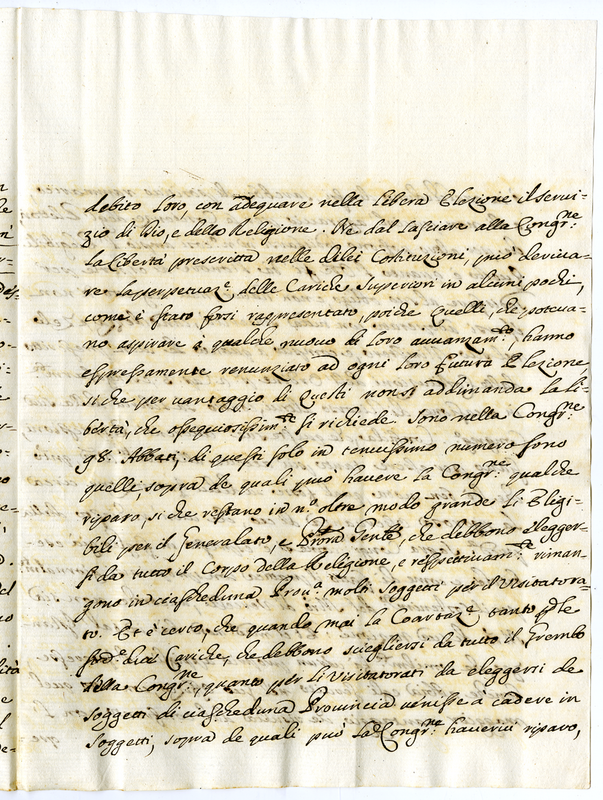 debito loro, con adequare nella libera Elezione il servi-
zio di Dio, e della Religione. Ne dal lasciare alla Congr.ne
la libertà prescritta nelle di lei Costituzioni, può deriva-
re la perpetuaz.e delle Cariche Superiori in alcuni pochi,
come è stato forsi rappresentato, poiche quelli, che poteva-
no aspirare a qualche nuovo di loro avvanzam.to, hanno
espressamente renunziato ad ogni loro futura Elezione,
si che per vantaggio di questi non si addimanda la li-
bertà, che ossequiosissim.te si richiede. Sono nella Congr.ne
98. Abbati, di questi solo in tenuissimo numero sono
quelli sopra de quali può havere la Congr.ne qualche
riparo, si che restano in n.o oltre modo grande li Eleggi-
bili per il Generalato, e Gen.le, che debbono elegger-
si da tutto il Corpo della Religione, e respettivam.te riman-
gono in ciascheduna Prov.a molti soggetti per il Visitatora-
to. Et è certo, che quando mai la Coartaz.e tanto p le
Cariche, che debbono sciegliersi da tutto il Grembo
della Congr.ne, quanto per li Visitatorati da eleggersi de
soggetti di ciascheduna Provincia venisse à cadere in
soggetti, sopra de quali può la Congr.ne havervi riparo,